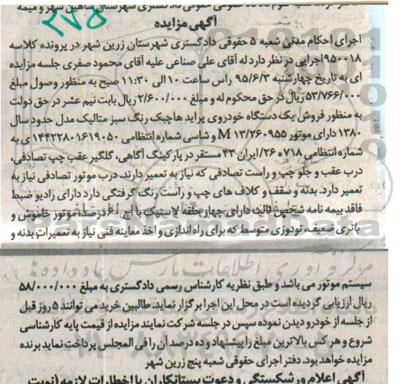 آگهی مزایده
اجرای احکام مدنی شعبه ۵ حقوقی دادگستری شهرستان زرین شهر در پرونده کلاسه
۹۵۰۰۱۸ اجرایی در نظر دارد له آقای علی صناعی علیه آقای محمود صفری جلسه مزایده
ای به تاریخ چهارشنبه ۹۵/۶/۳ راس ساعت ۱۰ الی ۱۱:۳۰ صبح به منظور وصول مبلغ
۵۳/۷۶۶/۰۰۰ ریال در حق محکوم له و مبلغ ۲/۶۰۰/۰۰۰ ریال بابت نیم عشر در حق دولت
به منظور فروش یک دستگاه خودروی پراید هاچبک رنگ سبز متالیک مدل حدود سال
۱۳۸۰ دارای موتور M ۱۳/۲۶۰۹۵۵ و شاسی شماره انتظامی ۱۴۴۲۲۸۰۱۶۱۹۰۵۰ به ی
شماره انتظامی ۷۱۸ ه ۲۶/ ایران ۴۳ مستقر در پارکینگ آگاهی، گلگیر عقب چپ تصادفی،
درب عقب و جلو چپ و راست تصادفی که نیاز به تعمیر دارند. درب موتور تصادفی نیاز به
تعمیر دارد. بدنه و سقف و کلاف های چپ و راست رنگ گرفتگی دارد دارای رادیو ضبط
فاقد بیمه نامه شخص ثالث دارای چهار حلقه لاستیک با آج ۶۰ درصد، موتور خاموش و
باتری ضعیف، تودوزی متوسط که برای راه اندازی و اخذ معاینه فنی نیاز به تعمیرات بدنه و
سیستم موتور می باشد و طبق نظریه کارشناس رسمی دادگستری به مبلغ ۵۸/۰۰۰/۰۰۰
ریال ارزیابی گردیده است در محل این اجرا برگزار نماید. طالبین خرید می توانند ۵ روز قبل
از جلسه از خودرو دیدن نموده سپس در جلسه شرکت نمایند مزایده از قیمت پایه کارشناسی
شروع و هر کس بالاترین مبلغ را پیشنهاد و ده درصد آن را فی المجلس پرداخت نماید برنده
مزایده خواهد بود. دفتر اجرای حقوقی شعبه پنج زرین شهر
آگهی اعلام ورشکستگی و دعوت بستانکاران با اخطارات لازمه (نوبت